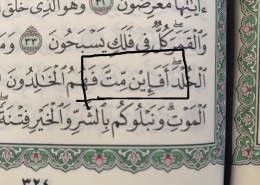 ءَايَٰتِهَا مُعْرِضُونَ ٣٢ وَهُوَ ٱلَّذِى خَلَقَ
وَٱلْقَمَرَ كُلٌّ فِى فَلَكٍ يَسْبَحُونَ ٣٣ وَمَا
ٱلْخُلْدَ أَفَإِي۟ن مِّتَّ فَهُمُ ٱلْخَٰلِدُونَ
ٱلْمَوْتِ وَنَبْلُوكُم بِٱلشَّرِّ وَٱلْخَيْرِ فِتْنَةً
٣٢٤